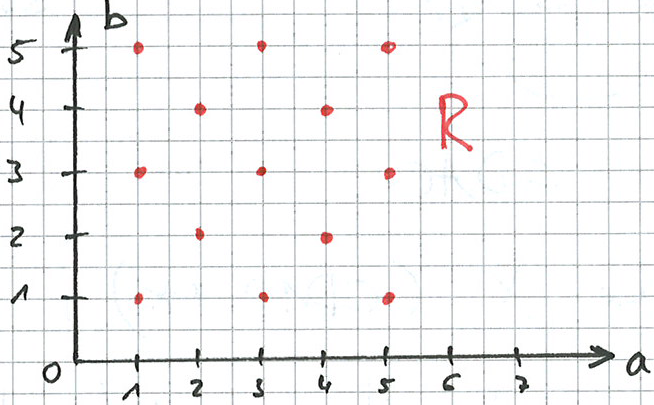 b
5
4
R
3
2
1
0
1 2 3 4 5 6 7
a